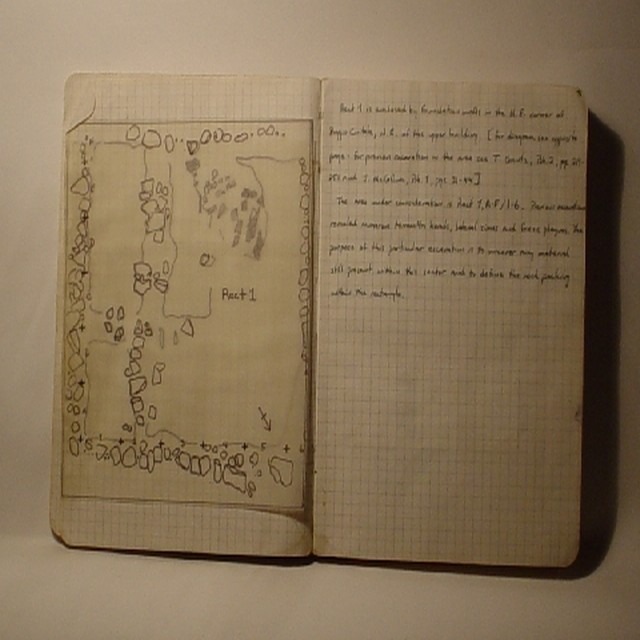 Rect 1
Rect 1 is enclosed by foundation walls in the N.E. corner of
of the upper building. [for diagram see opposite
page - for previous excavation in the area see T. pg.
The area under consideration is Rect 1, A-F/1-6. Previous excavation
revealed numerous terracotta heads, lateral simas and frieze plaques. The
purpose of this particular excavation is to uncover any material
still present within this sector and to define the rock packing
within the rectangle.